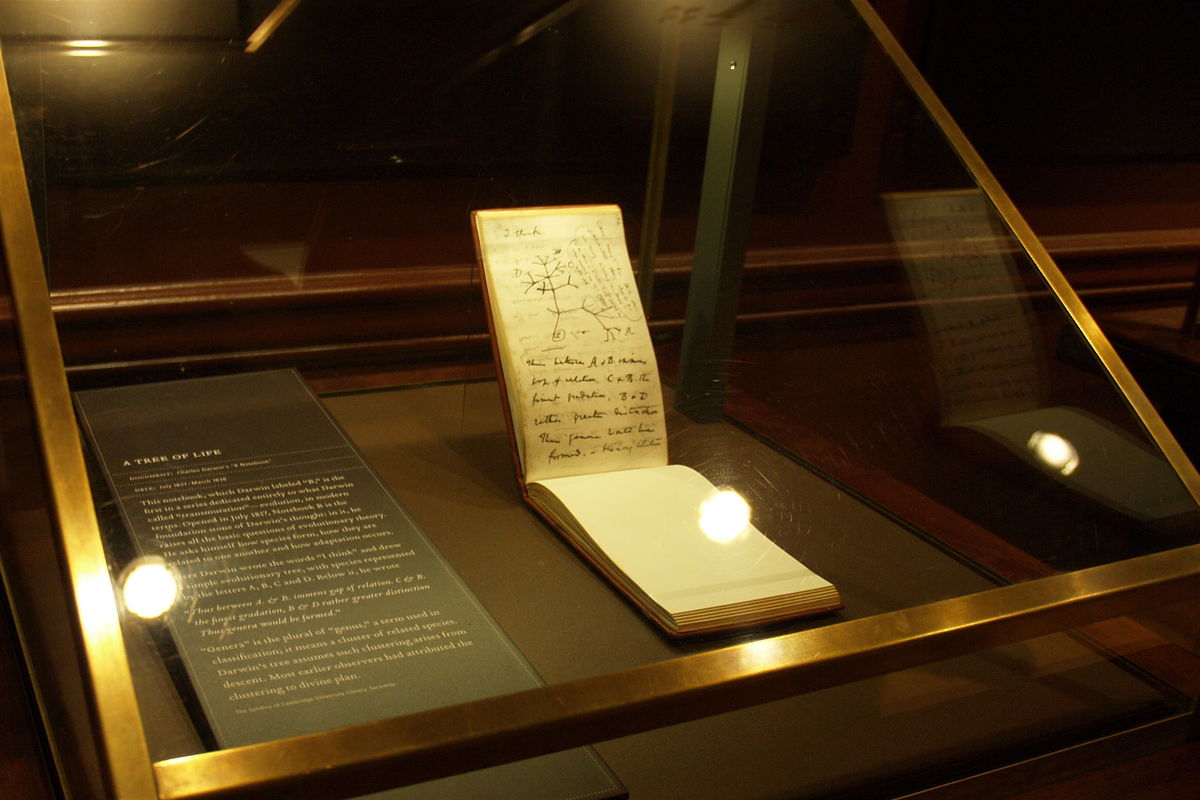 A TREE OF LIFE
DOCUMENT: Charles Darwin's "B Notebook"
DATE: July 1837–March 1838
This notebook, which Darwin labeled "B," is the
first in a series dedicated entirely to what Darwin
called "transmutation"—evolution, in modern
terms. Opened in July 1837, Notebook B is the
foundation stone of Darwin's thought. In it, he
raises all the basic questions of evolutionary theory.
He asks himself how species form, how they are
related to one another and how adaptation occurs.
Here Darwin wrote the words "I think" and drew
simple evolutionary tree, with species represented
by the letters A, B, C and D. Below it, he wrote
"Thus between A. & B. immens gap of relation. C & B.
the finest gradation, B & D rather greater distinction
Thus genera would be formed."
"Genera" is the plural of "genus," a term used in
classification; it means a cluster of related species.
Darwin's tree assumes such clustering arises from
descent. Most earlier observers had attributed the
clustering to divine plan.
The Syndics of Cambridge University Library, facsimile
I think
D B C
A
1
Thus between A & B immens
gap of relation. C & B. the
finest gradation, B & D
rather greater distinction
Thus genera would be
formed. — bearing relation